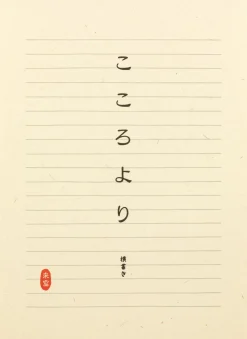 こころより
横書き